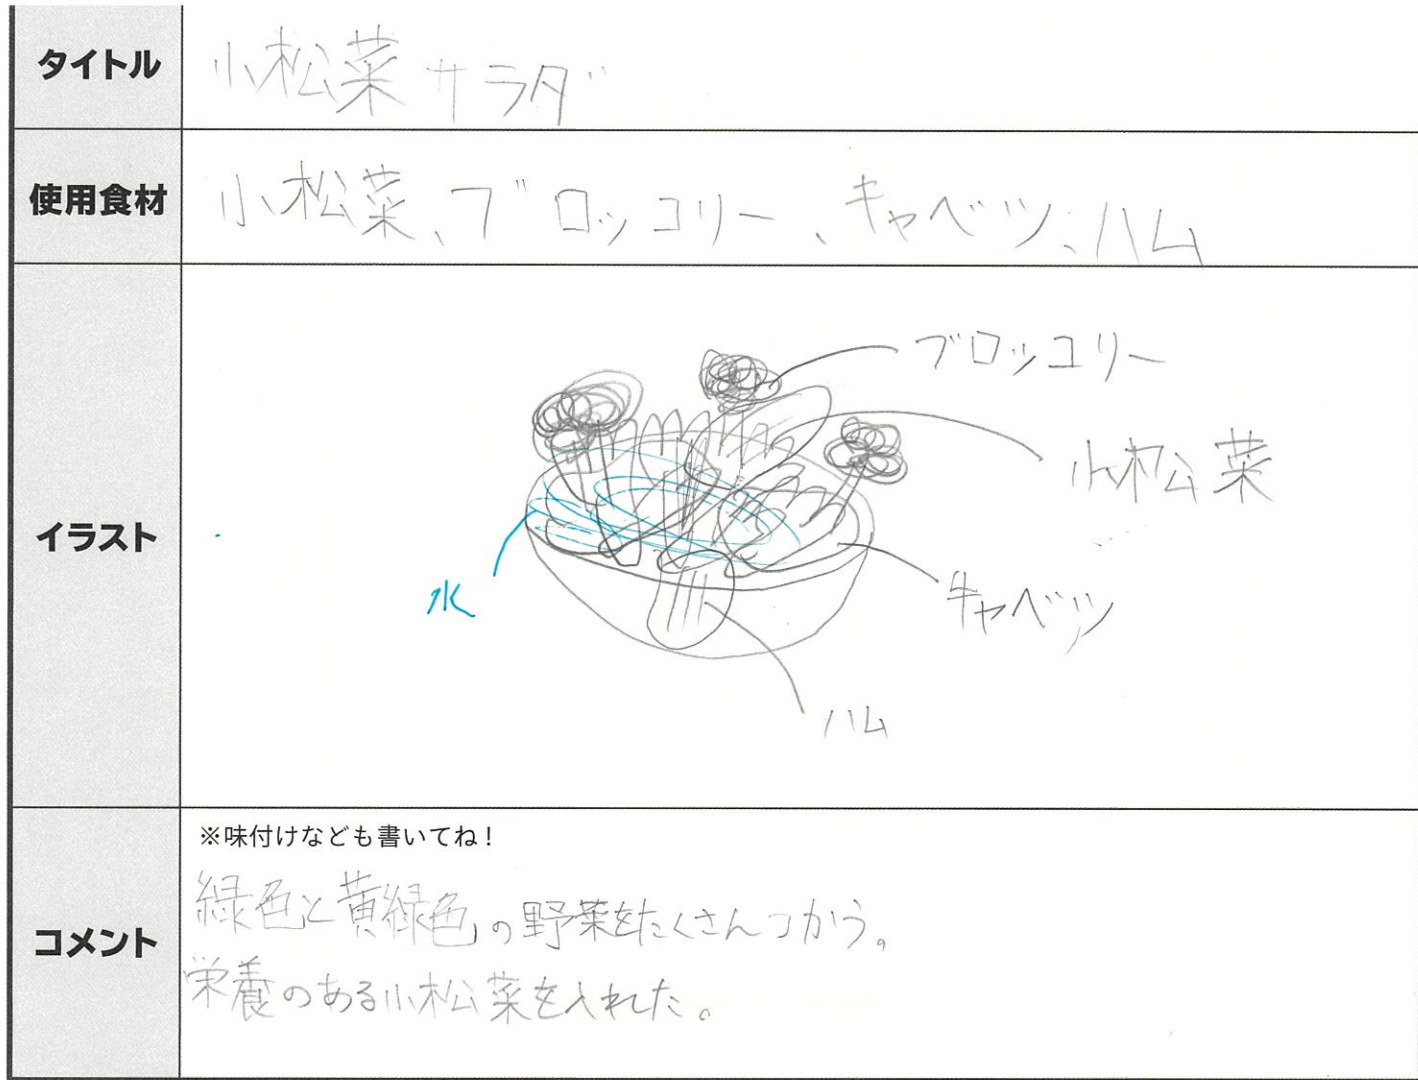 タイトル
小松菜サラダ
使用食材
小松菜、ブロッコリー、キャベツ、ハム
イラスト
ブロッコリー
小松菜
水
キャベツ
ハム
コメント
※味付けなども書いてね!
緑色と黄緑色の野菜をたくさんつかう。
栄養のある小松菜を入れた。